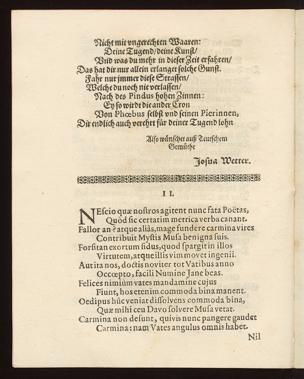 Nicht mit vngerechten Waaren:
Deine Tugend/deine Kunst/
Vnd was du mehr in dieser Zeit erfahren/
Das hat dir nur allein erlanget solche Gunst.
Fahr nur jmmer diese Strassen/
Welche du noch nie verlassen/
Nach des Pindus hohen Zinnen:
Ey so wirdt die ander Cron
Von Phœbus selbst vnd seinen Pierinnen,
Dir endlich auch verehrt für deiner Tugend lohn
Also wünschet auß Teutschem
Gemüthe
Josua Wetter.
II.
NEscio quæ nostros agitent nunc fata Poëtas,
Quòd sic certatim metrica verba canant.
Fallor an? atque aliàs, mage fundere carmina vires
Contribuit Mystis Musa benigna suis.
Forsitan exortum sidus, quod spargit in illos
Virtutem, atque illis vim movet ingenii.
Aut ita nos, doctis noviter tot Vatibus anno
Occœpto, facili Numine Jane beas.
Felices nimium vates mandamine cujus
Fiunt, hos etenim commoda bina manent.
Oedipus hûc veniat dissolvens commoda bina,
Quæ mihi ceu Davo solvere Musa vetat.
Carmina non desunt, quivis nunc pangere gaudet
Carmina: nam Vates angulus omnis habet.
Nil